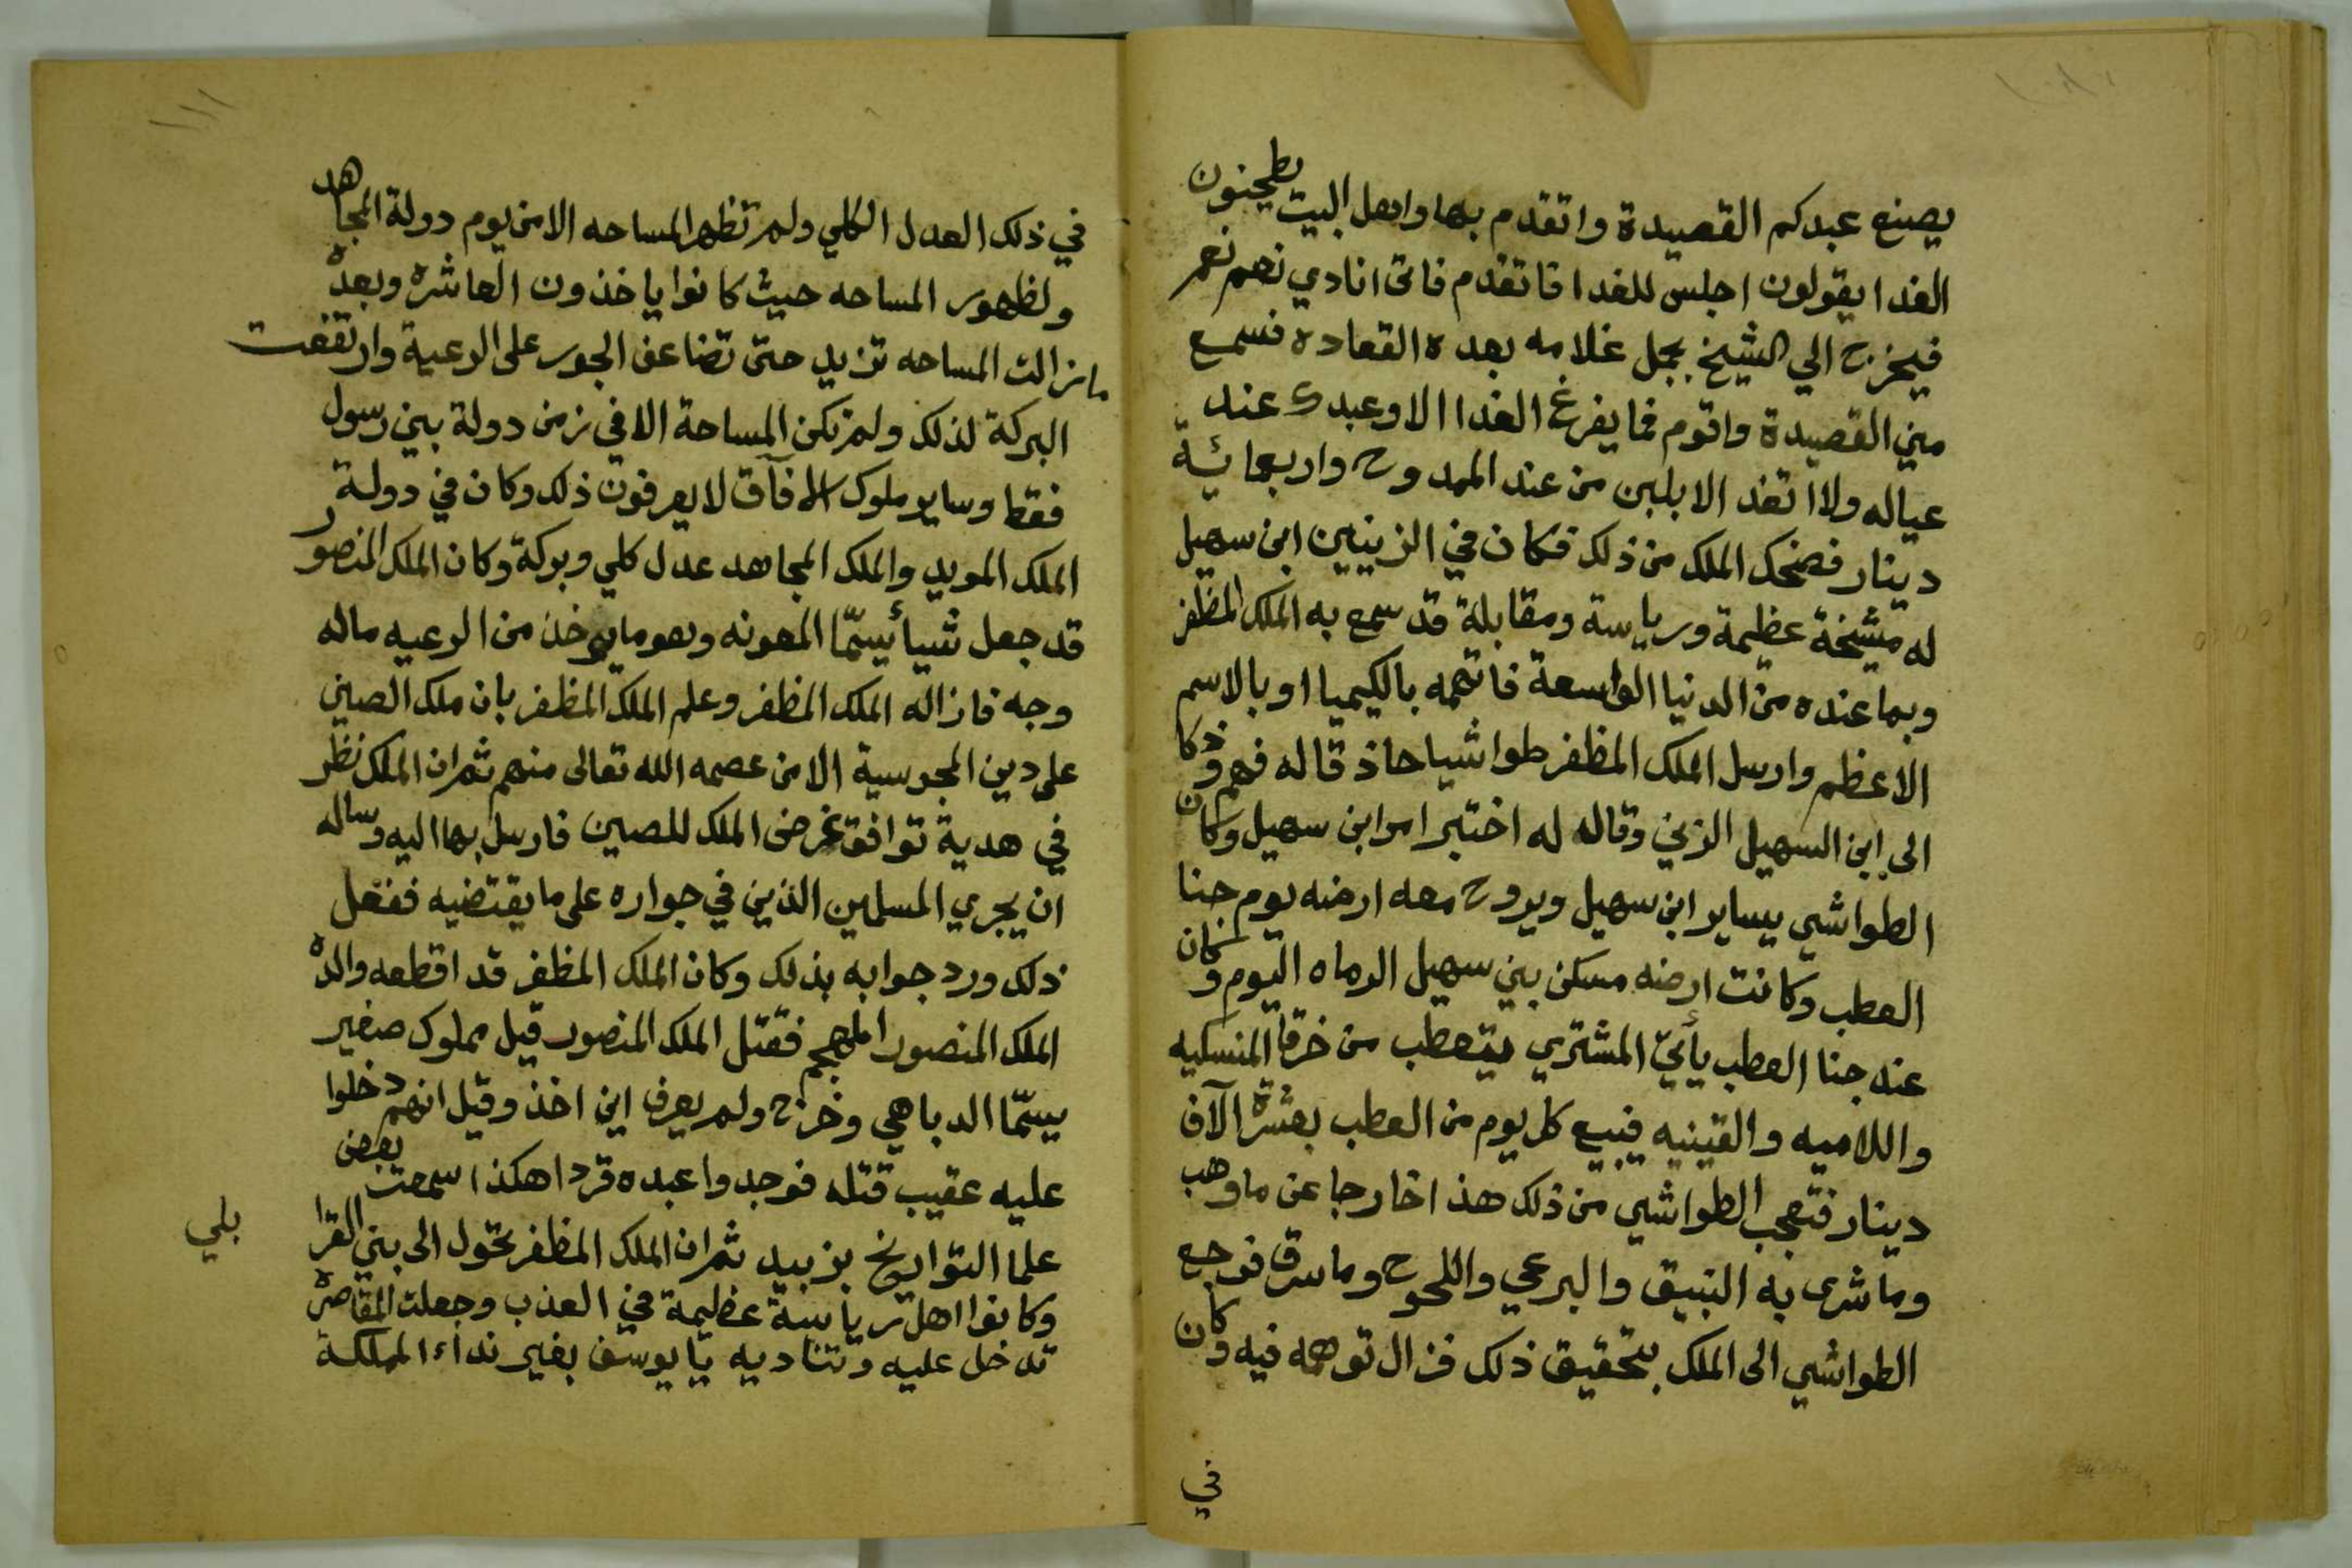 يصنع عبدكم القصيدة واتقدم بها واهل البيت يطحنون
الغدا يقولون اجلس للغدا قا تقدم فانى انادي نعم نعم
فيخرج الي الشيخ بجمل غلامه بعده القعاده فسمع
مني القصيدة واقوم فما يفرغ الغدا الا وعبدك عند
عياله ولا اتغد الا بلبن من عند الممدوح واربعمائة
دينار فضحك الملك من ذلك فكان في الزينيين ابن سهيل
له مشيخة عظيمة ورياسة ومقابلة قد سمع به الملك المظفر
وبما عنده من الدنيا الواسعة فاتهمه بالكيميا او بالاسم
الاعظم وارسل الملك المظفر طواشيا حاذقا له فهم وذكا
الى ابن السهيل الزيني وقاله له اختبر امر ابن سهيل وكان
الطواشي يساير ابن سهيل ويروح معه ارضه يوم جنا
العطب وكانت ارضه مسكن بني سهيل الرماه اليوم وكان
عند جنا العطب يأتي المشتري يتعطب من خرقا المنسكيه
واللاميه والقينيه فيبيع كل يوم من العطب بعشرة الآف
دينار فتعجب الطواشي من ذلك هذا خارجا عن ما وهب
وما شرى به النبيق والبرعي واللحوح وما سرق فرجع
الطواشي الى الملك بتحقيق ذلك فزال توهمه فيه وكان
في
في ذلك العدل الكلي ولم تظهر المساحه الا من يوم دولة المجاهد
ولظهور المساحه حيث كانوا ياخذون العاشره وبعده
ما زالت المساحه تزيد حتى تضاعف الجور على الرعية وارتفعت
البركة لذلك ولم تكن المساحة الا في زمن دولة بني رسول
فقط وساير ملوك الافآق لا يعرفون ذلك وكان في دولة
الملك المويد والملك المجاهد عدل كلي وبركة وكان الملك المنصور
قد جعل شيأ يسمّا المعونه وهو ما يوخذ من الرعيه ماله
وجه فازاله الملك المظفر وعلم الملك المظفر بان ملك الصين
على دين المجوسية الا من عصمه الله تعالى منهم ثم ان الملك نظر
في هدية توافق غرض الملك للصين فارسل بها اليه وساله
ان يجري المسلمين الذين في جواره على ما يقتضيه ففعل
ذلك ورد جوابه بذلك وكان الملك المظفر قد اقطعه والده
الملك المنصور المهجم فقتل الملك المنصور قيل مملوك صغير
يسمّا الدباهي وخرج ولم يعرف اين اخذ وقيل انهم دخلوا
عليه عقيب قتله فوجدوا عبده قردا هكذا سمعت بعض
علما التواريخ بزبيد ثم ان الملك المظفر تحول الى بني القرا
وكانوا اهل رياسة عظيمة في العذب وجعلت القاصره
تدخل عليه وتناديه يا يوسف بغير نداء المملكة
بلي